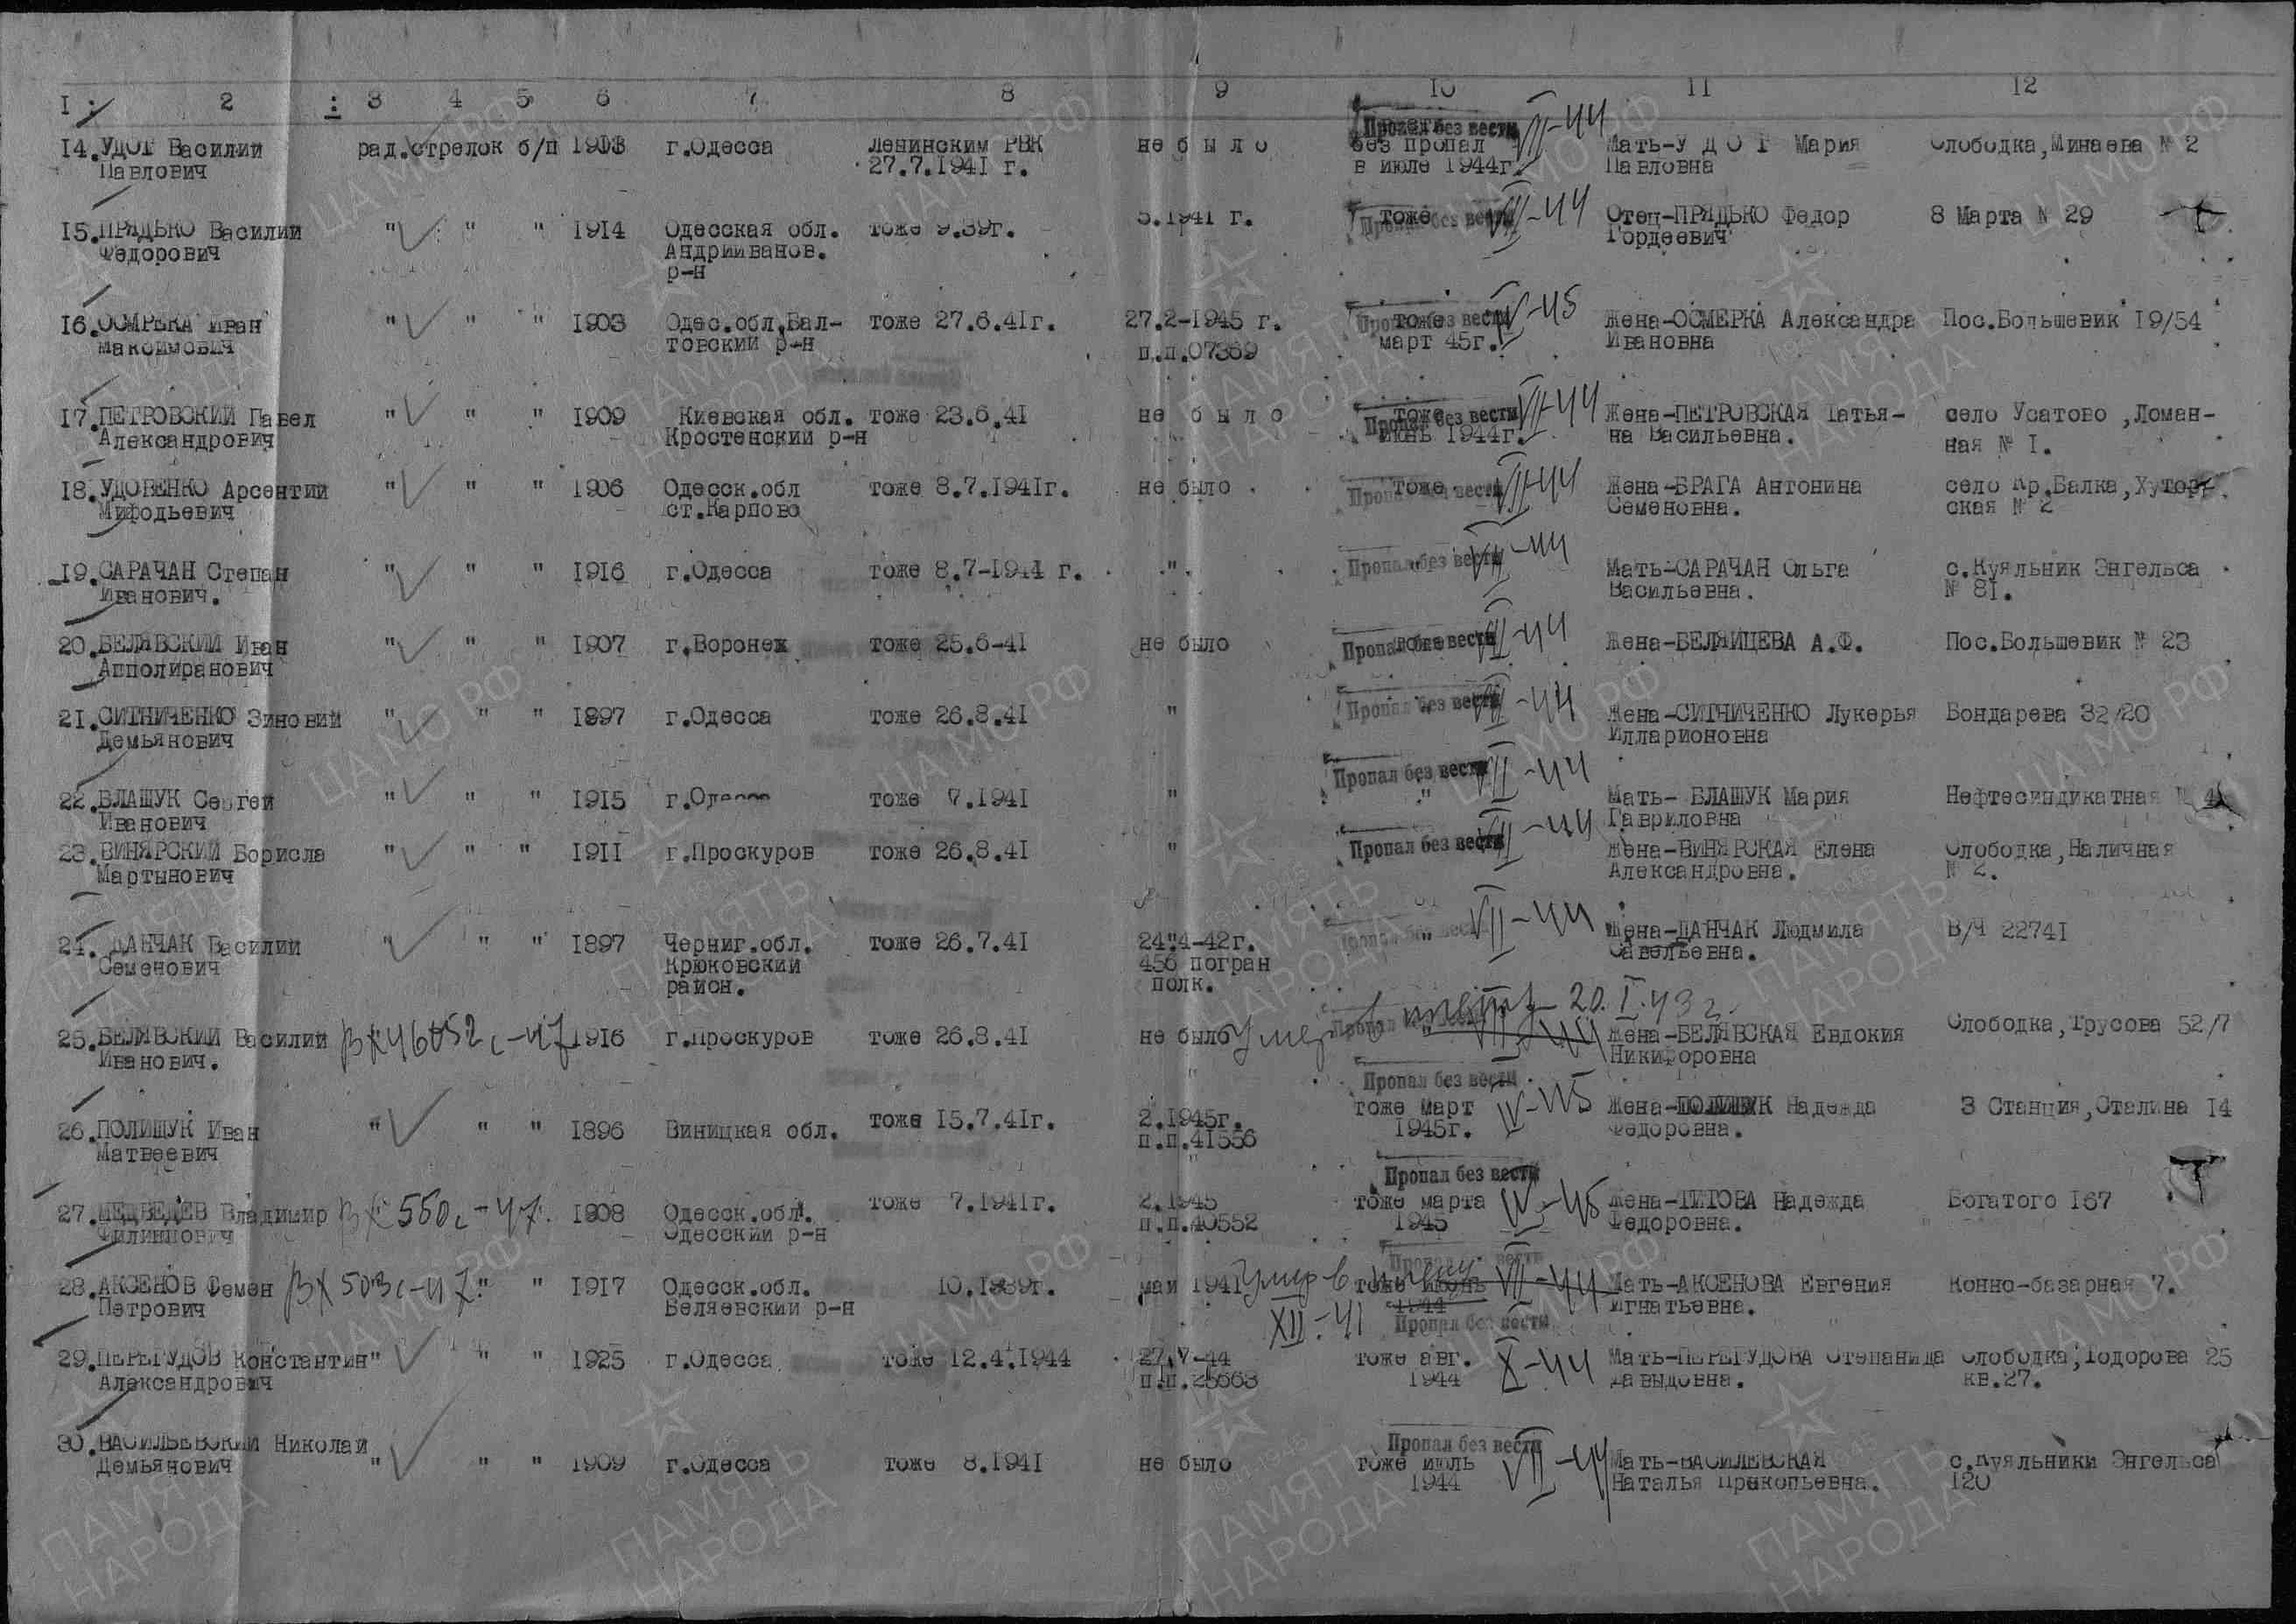 I : 2 : 3 4 5 6 7 8 9 10 11 12
14.УДОТ Василий рад.стрелок б/п 1903 г.Одесса Ленинским РВК не б ы л о без пропал Мать-У Д О Т Мария Слободка,Минаева № 2
Павлович 27.7.1941 г. в июле 1944г. Павловна
Пропал без вести VII-44
15.ПРЯДЬКО Василий " " " 1914 Одесская обл. тоже 9.39г. 5.1941 г. тоже Отец-ПРЯДЬКО Федор 8 Марта № 29
Федорович Андрийванов. Гордеевич
р-н
Пропал без вести VII-44
16.ОСМРЕКА Иван " " " 1903 Одес.обл,Бал- тоже 27.6.41г. 27.2-1945 г. тоже Жена-ОСМЕРКА Александра Пос.Большевик 19/54
Максимович товский р-н п.п.07369 март 45г. Ивановна
Пропал без вести IV-45
17.ПЕТРОВСКИЙ Павел " " " 1909 Киевская обл. тоже 23.6.41 не б ы л о тоже Жена-ПЕТРОВСКАЯ Татья- село Усатово ,Ломан-
Александрович Кростенский р-н июнь 1944г. на Васильевна. ная № I.
Пропал без вести VII-44
18.УДОВЕНКО Арсентий " " " 1906 Одесск.обл тоже 8.7.1941г. не было тоже Жена-БРАГА Антонина село Кр.Балка,Хутор-
Мифодьевич ст.Карпово Семеновна. ская № 2
Пропал без вести VII-44
19.САРАЧАН Степан " " " 1916 г.Одесса тоже 8.7-1941 г. " " Мать-САРАЧАН Ольга с.Куяльник Энгельса
Иванович. Васильевна. № 81.
Пропал без вести VII-44
20.БЕЛЯВСКИЙ Иван " " " 1907 г.Воронеж тоже 25.6-41 не было Жена-БЕЛЯЙЦЕВА А.Ф. Пос.Большевик № 23
Апполиранович
Пропал без вести VII-44
21.СИТНИЧЕНКО Зиновий " " " 1897 г.Одесса тоже 26.8.41 " Жена-СИТНИЧЕНКО Лукерья Бондарева 32/20
Демьянович Илларионовна
Пропал без вести VII-44
22.ВЛАЩУК Сергей " " " 1915 г.Одесса тоже 7.1941 " " Мать- ВЛАЩУК Мария Нефтесиндикатная № 4
Иванович Гавриловна
Пропал без вести VII-44
23.ВИНЯРСКИЙ Борисла " " " 1911 г.Проскуров тоже 26.8.41 " Жена-ВИНЯРСКАЯ Елена Слободка,Наличная
Мартынович Александровна. № 2.
Пропал без вести VII-44
24. ДАНЧАК Василий " " " 1897 Черниг.обл. тоже 26.7.41 24.4-42г. " Жена-ДАНЧАК Людмила В/Ч 22741
Семенович Крюковский 456 погран Савельевна.
район. полк.
Пропал без вести VII-44
25.БЕЛЯВСКИЙ Василий Вх 46052с-47 1916 г.Проскуров тоже 26.8.41 не было Умер в плену 20.I.43г. Жена-БЕЛЯВСКАЯ Евдокия Слободка,Трусова 52/7
Иванович. Никифоровна
Пропал VII-44
26.ПОЛИЩУК Иван " " " 1896 Виницкая обл. тоже 15.7.41г. 2.1945г. тоже март Жена-ПОЛИЩУК Надежда 3 Станция,Сталина 14
Матвеевич п.п.41556 1945г. Федоровна.
Пропал без вести IV-45
27.МЕДВЕДЕВ Владимир Вх 550с-47. 1908 Одесск.обл. тоже 7.1941г. 2.1945 тоже марта Жена-ТИТОВА Надежда Богатого 167
Филиппович Одесский р-н п.п.40552 1945 Федоровна.
Пропал без вести IV-45
28.АКСЕНОВ Семен Вх 503с-47. " " 1917 Одесск.обл. 10.1939г. май 1941 Умер в плену тоже июнь VII-44 Мать-АКСЕНОВА Евгения Конно-базарная 7.
Петрович Беляевский р-н XII-41 1944 Игнатьевна.
Пропал без вести
29.ПЕРЕГУДОВ Константин" " " 1925 г.Одесса тоже 12.4.1944 27.V-44 тоже авг. Мать-ПЕРЕГУДОВА Степанида Слободка,Тодорова 25
Александрович п.п.25663 1944 Давыдовна. кв.27.
Пропал без вести X-44
30.ВАСИЛЬЕВСКИЙ Николай " " " 1909 г.Одесса тоже 8.1941 не было тоже июль Мать-ВАСИЛЕВСКАЯ с.Куяльники Энгельса
Демьянович 1944 Наталья Прокопьевна. 120
Пропал без вести VII-44